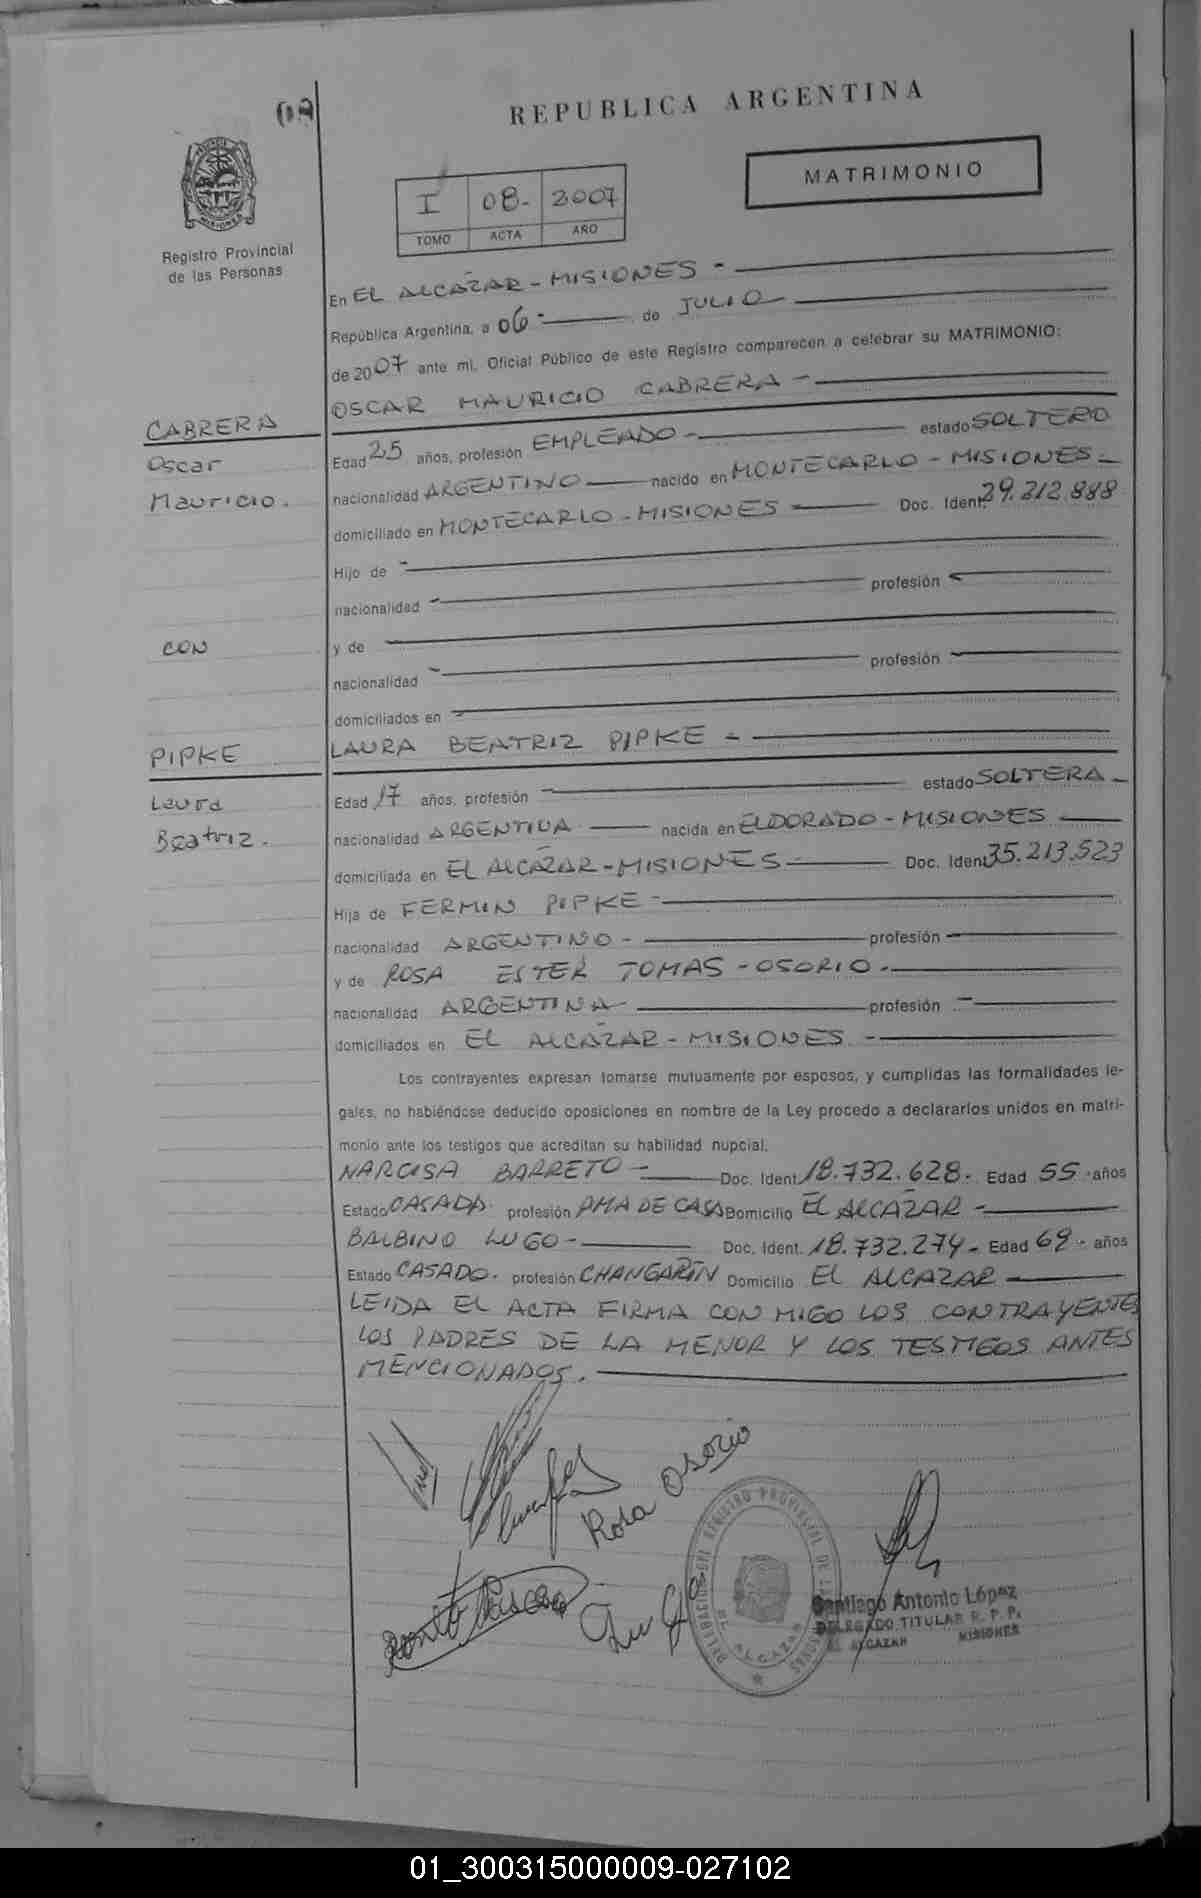 08
REPUBLICA ARGENTINA
MATRIMONIO
I 08- 2007
TOMO ACTA AÑO
Registro Provincial
de las Personas
En EL ALCAZAR - MISIONES -
República Argentina, a 06- de JULIO
de 2007 ante mi, Oficial Público de este Registro comparecen a celebrar su MATRIMONIO:
OSCAR MAURICIO CABRERA -
CABRERA
Oscar
Mauricio.
Edad 25 años, profesión EMPLEADO - estado SOLTERO
nacionalidad ARGENTINO nacido en MONTECARLO - MISIONES -
domiciliado en MONTECARLO - MISIONES Doc. Ident. 29.212.888
Hijo de -
nacionalidad - profesión -
CON
y de -
nacionalidad - profesión -
domiciliados en -
PIPKE
Laura
Beatriz.
LAURA BEATRIZ PIPKE -
Edad 17 años, profesión - estado SOLTERA -
nacionalidad ARGENTINA nacida en ELDORADO - MISIONES
domiciliada en EL ALCAZAR - MISIONES - Doc. Ident. 35.213.523
Hija de FERMIN PIPKE -
nacionalidad ARGENTINO - profesión -
y de ROSA ESTER TOMAS - OSORIO -
nacionalidad ARGENTINA - profesión -
domiciliados en EL ALCAZAR - MISIONES -
Los contrayentes expresan tomarse mutuamente por esposos, y cumplidas las formalidades le-
gales, no habiéndose deducido oposiciones en nombre de la Ley procedo a declararlos unidos en matri-
monio ante los testigos que acreditan su habilidad nupcial.
NARCISA BARRETO - Doc. Ident. 18.732.628- Edad 55 - años
Estado CASADA. profesión AMA DE CASA Domicilio EL ALCAZAR -
BALBINO LUGO - Doc. Ident. 18.732.274- Edad 69 - años
Estado CASADO. profesión CHANGARÍN Domicilio EL ALCAZAR
LEIDA EL ACTA FIRMA CON MIGO LOS CONTRAYENTES
LOS PADRES DE LA MENOR Y LOS TESTIGOS ANTES
MENCIONADOS.
Rosa Osorio
DELEGACION DEL REGISTRO PROVINCIAL DE LAS PERSONAS
EL ALCAZAR
Santiago Antonio López
DELEGADO TITULAR R. P. P.
EL ALCAZAR MISIONES
01_300315000009-027102